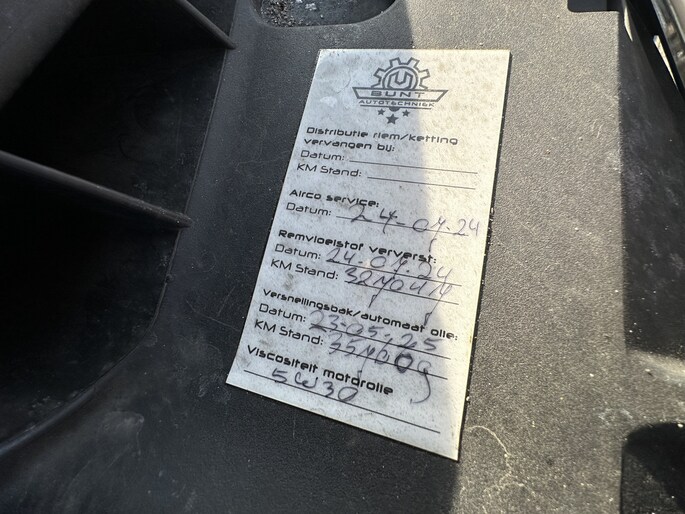 BUNT
AUTOTECHNIEK
Distributie riem/ketting
vervangen bij:
Datum:
KM Stand:
Airco service:
Datum: 24-07-24
Remvloeistof ververst:
Datum: 24-07-24
KM Stand:
Versnellingsbak/automaat olie:
Datum: 23-05-25
KM Stand:
Viscositeit motorolie
5W30